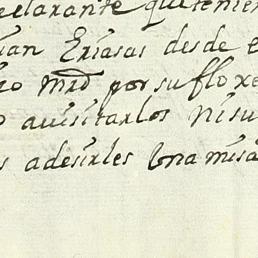 eclarante que tenien
uan Eriasas desde e
ro mrd por su flo xe
o auisitarlos ni su
s adesirles una misa